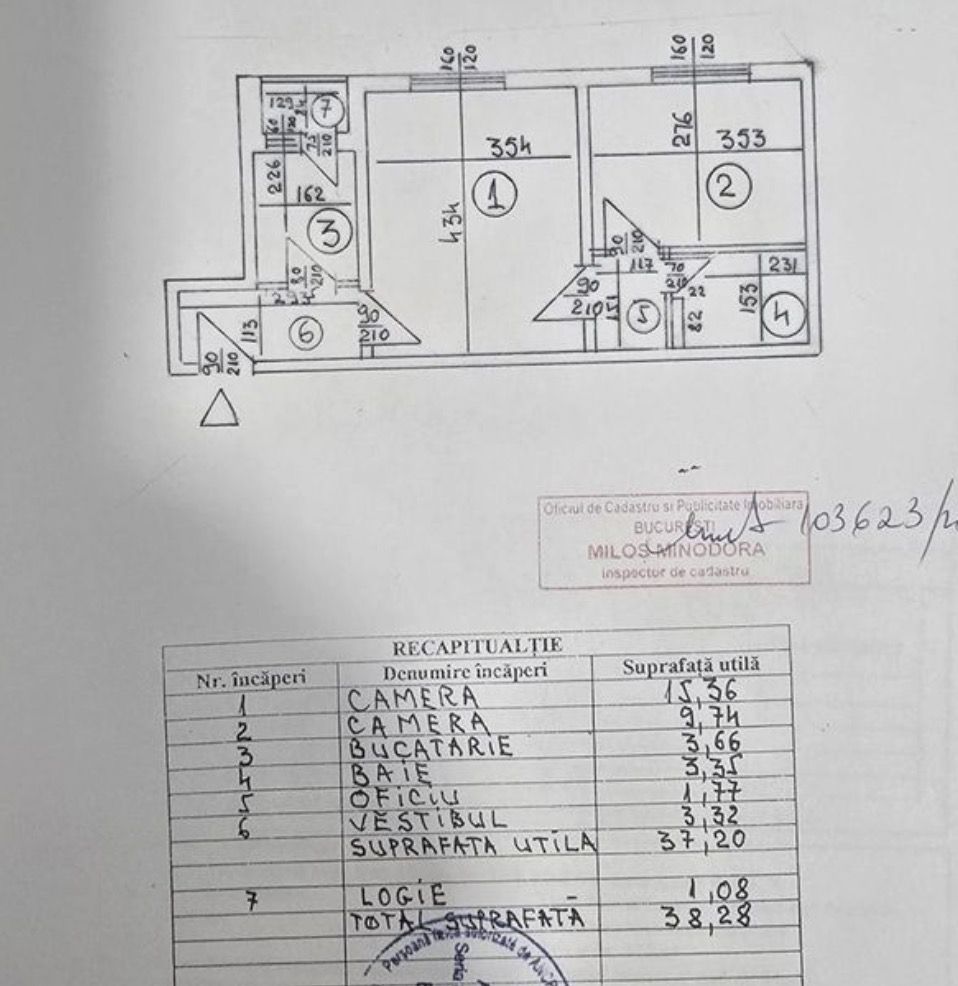 160 120
160 120
129
7
60 120
75 210
276
353
354
226
1
2
162
434
3
90 210
117
70 210
231
80 210
90 210
22
153
151
5
82
4
113
6
90 210
90 210
Oficiul de Cadastru si Publicitate Imobiliara
BUCUREȘTI
103623
MILOȘ MINODORA
inspector de cadastru
RECAPITUALȚIE
Nr. încăperi Denumire încăperi Suprafață utilă
1 CAMERA 15,36
2 CAMERA 9,74
3 BUCATARIE 3,66
4 BAIE 3,35
5 OFICIU 1,77
6 VESTIBUL 3,32
SUPRAFATA UTILA 37,20
7 LOGIE - 1,08
TOTAL SUPRAFATA 38,28
Persoană fizică autorizată de ANCP
Seria